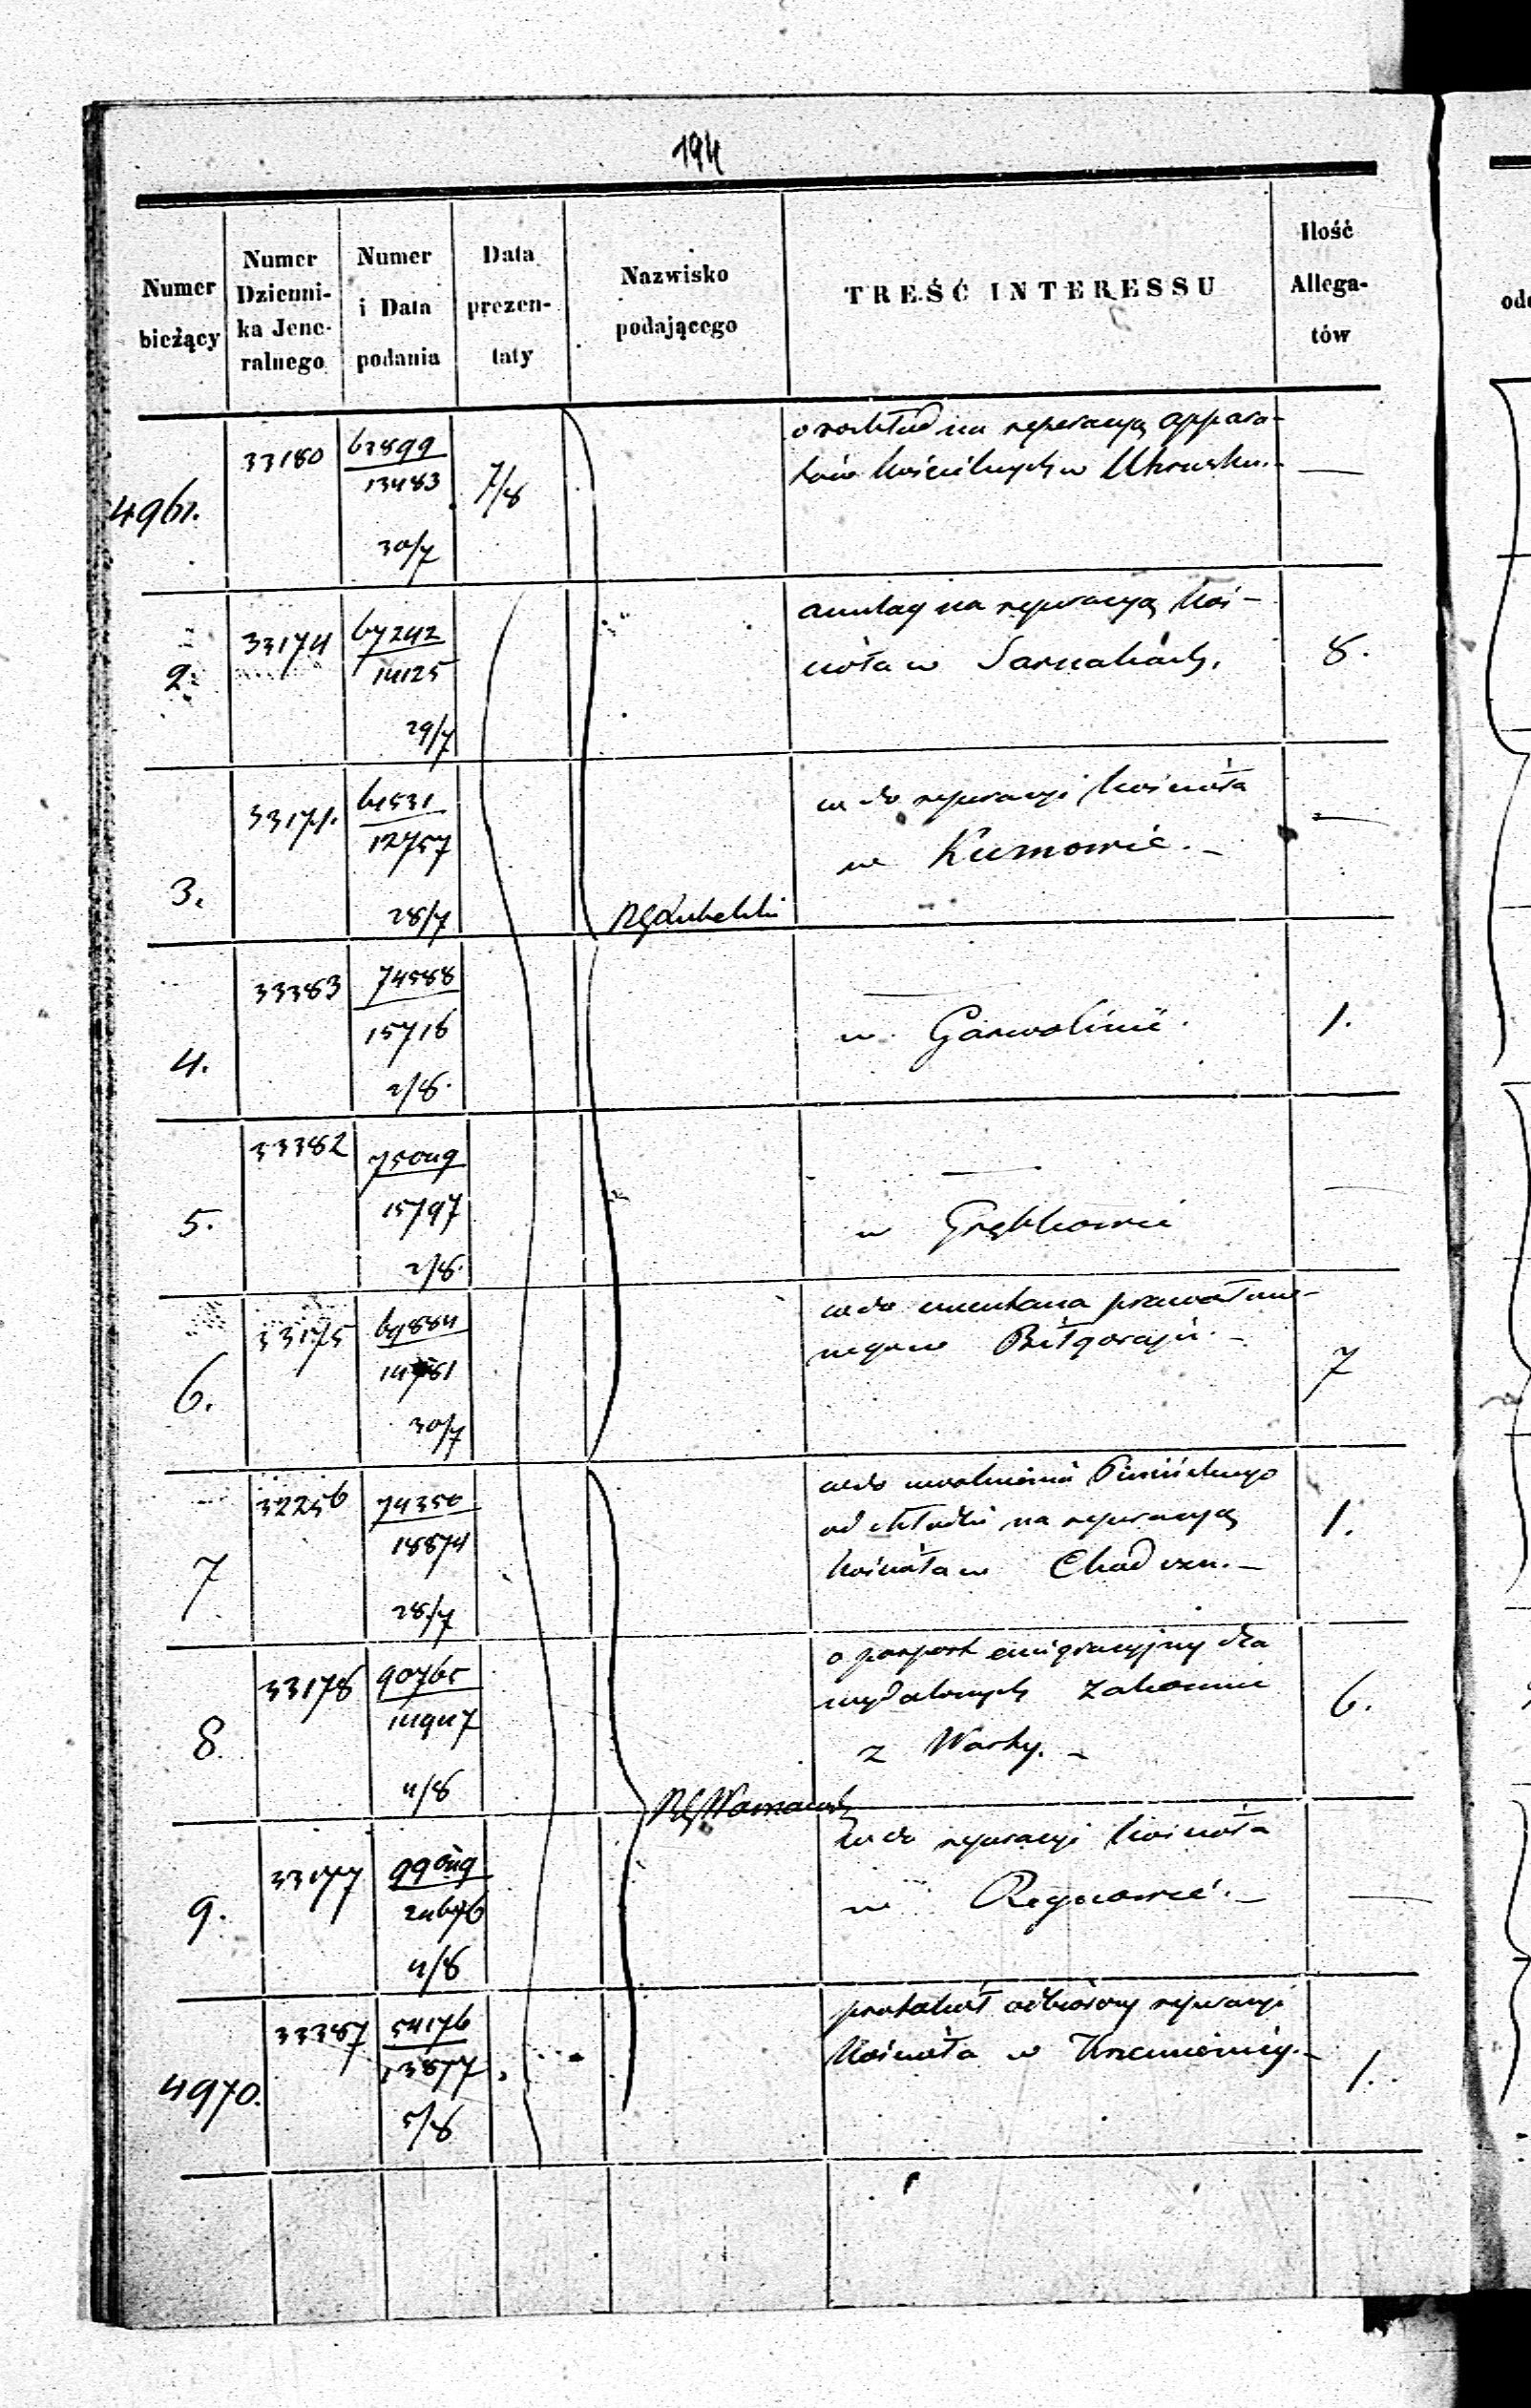 194
Numer bieżący | Numer Dzienni-ka Jene-ralnego | Numer i Data podania | Data prezen-taty | Nazwisko podającego | TREŚĆ INTERESSU | Ilość Allega-tów
4961. 33180 63899 13483 30/7 7/8
o rozkład na reperacyą appara-
tów kościelnych w Uhrusku. —
2. 33174 67242 14125 29/7
na reperacyą koś-
cioła w Sarnakach. 8.
3. 33171. 61531 12757 28/7
co do reperacyi kościoła
w Kumowie. — —
RGLubelski
4. 33383 74588 15716 2/8.
— w Garwolinie. 1.
5. 33382 75049 15797 2/8.
— w Grębkowie —
6. 33175 69884 30/7
co do cmentarza prawosław-
nego w Biłgoraju. — 7
7 32256 74350 18874 28/7
co do uwolnienia
od składki na reperacyą
kościoła w 1.
8. 33178 90765 14947 4/8
o pasport emigracyjny dla
wydalonych zakonnic
z Warky. — 6.
RGWarszawski
9. 33177 99049 24676 4/8
co do reperacyi kościoła
w Regnowie. — —
4970. 33387 54176 13877 5/8
protokół odbiorczy reperacyi
kościoła w Krzemienicy. — 1.